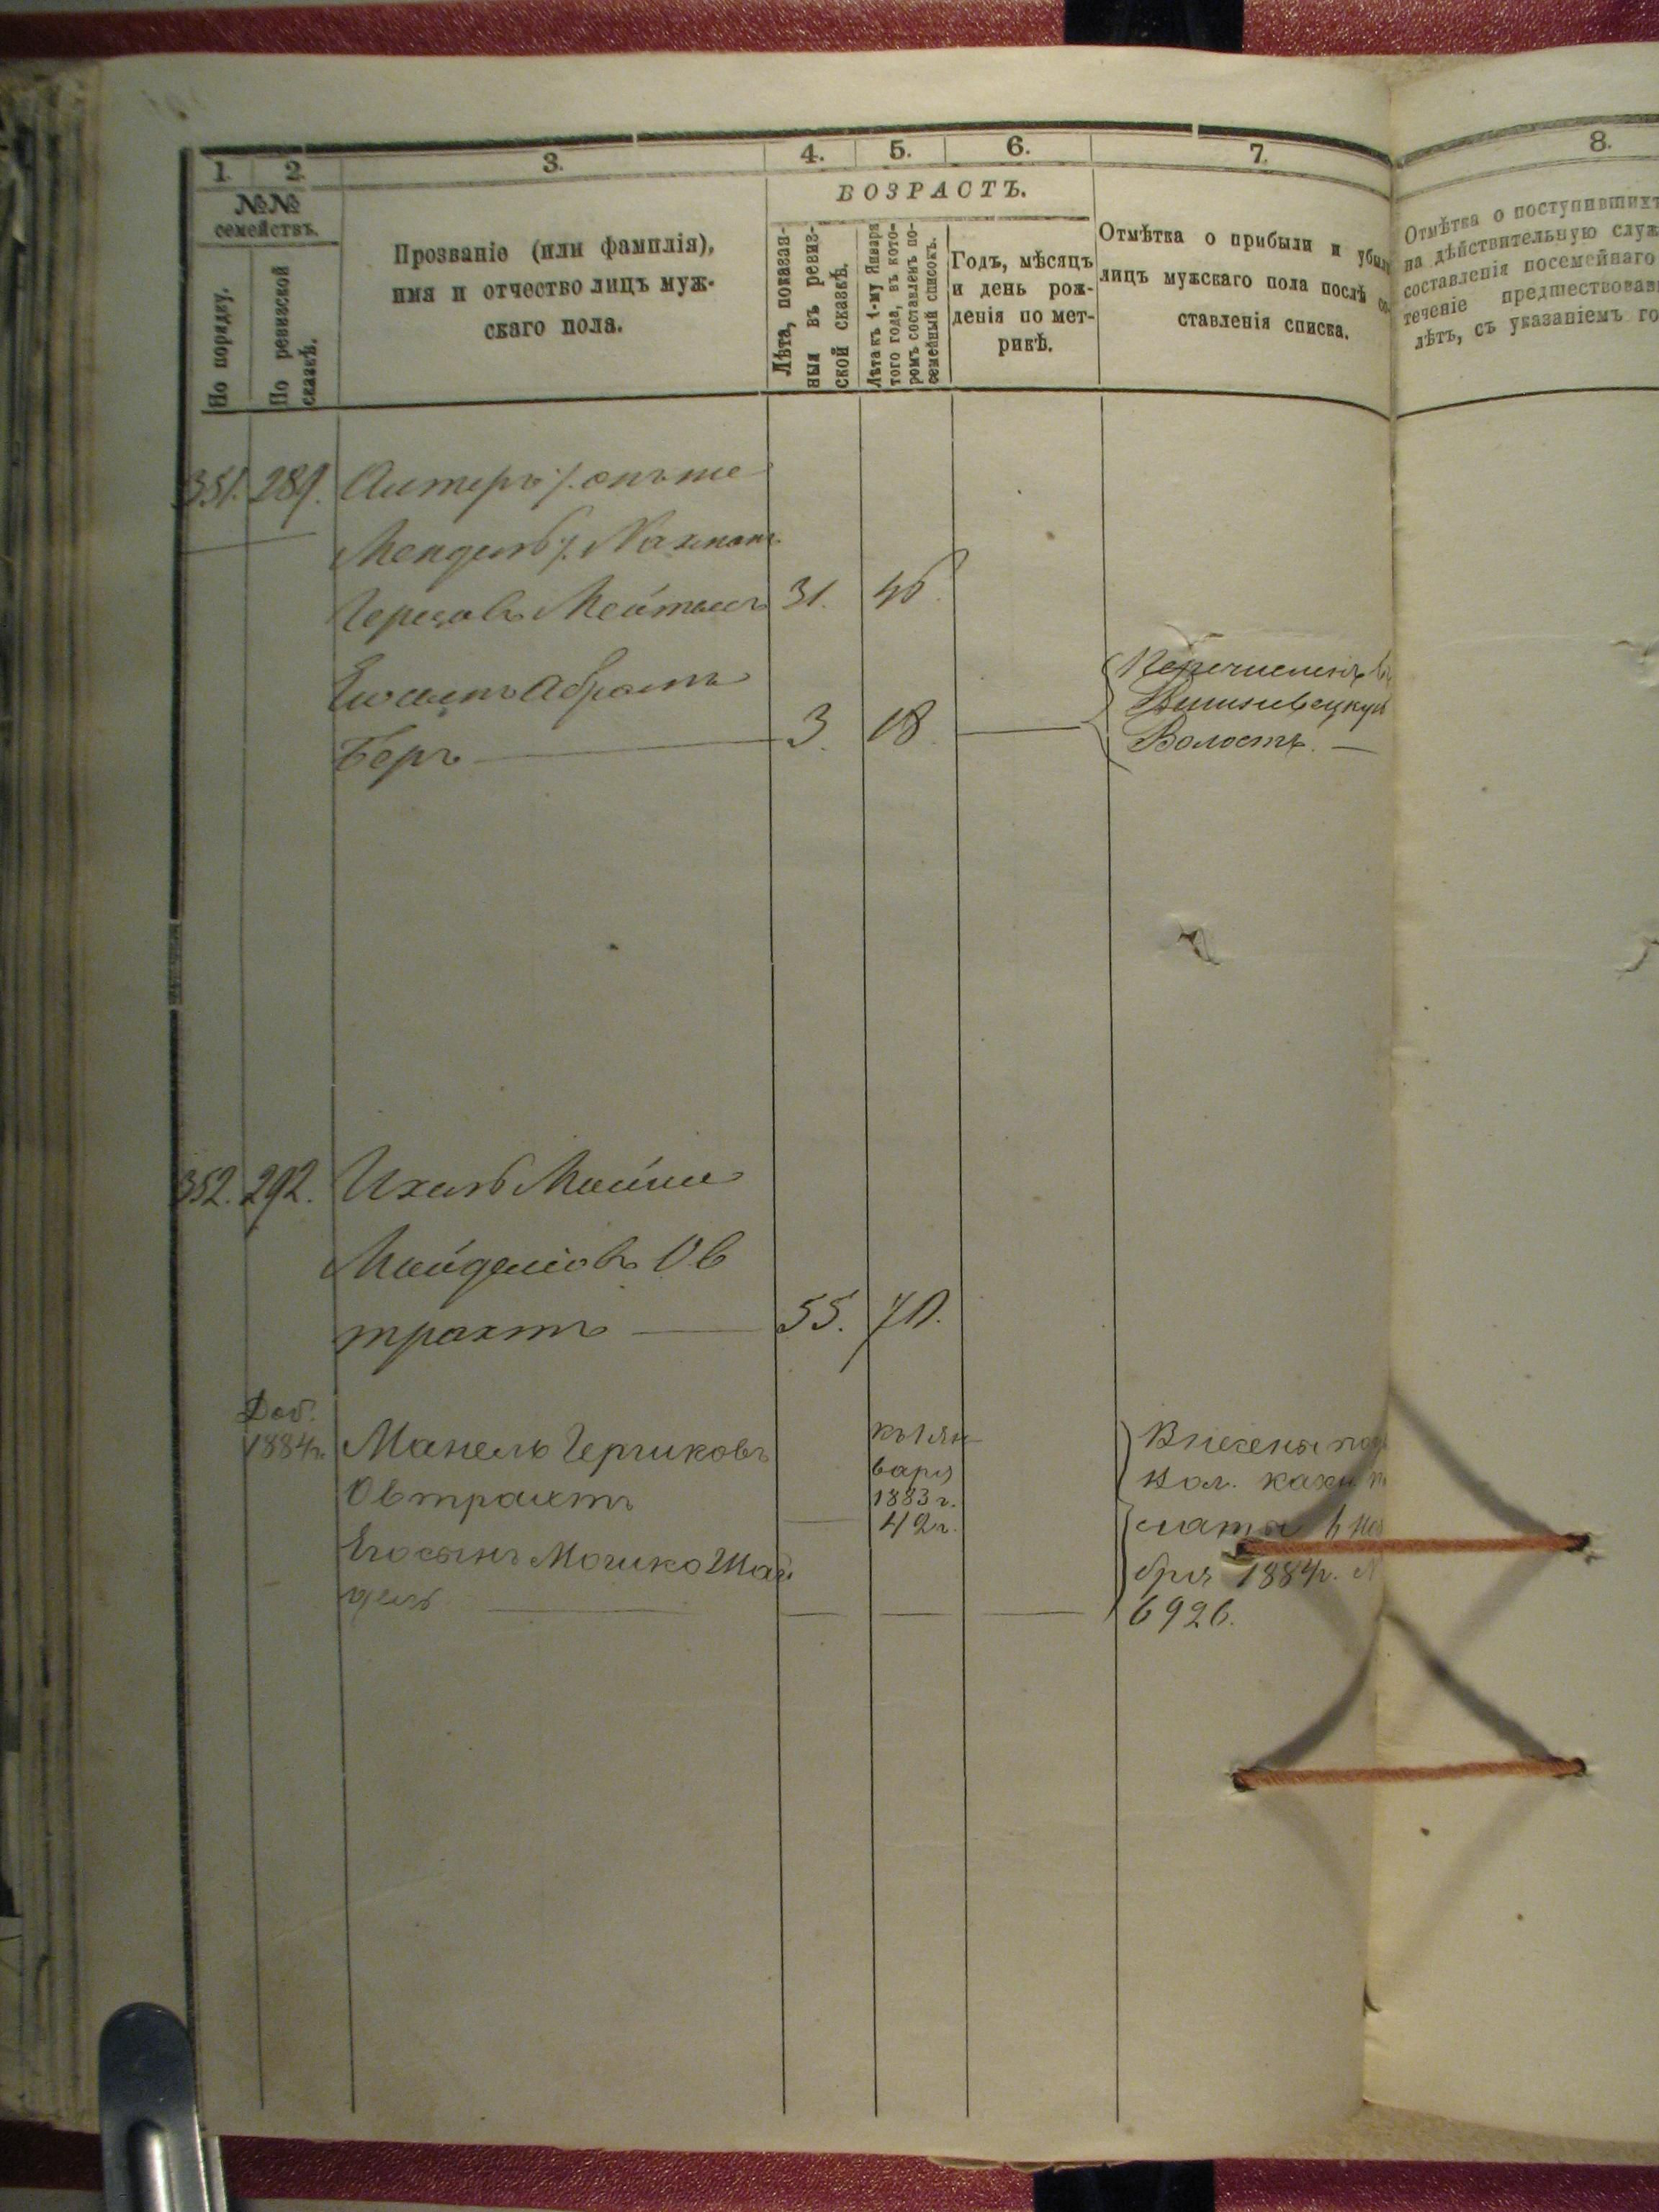 1.
2.
3.
4.
5.
6.
7.
8.
№№
семействъ.
По порядку.
По ревизской
сказкѣ.
Прозваніе (или фамилія),
имя и отчество лицъ муж-
скаго пола.
ВОЗРАСТЪ.
Лѣта, показан-
ныя въ ревиз-
ской сказкѣ.
Лѣта къ 1-му Января
того года, въ кото-
ромъ составленъ по-
семейный списокъ.
Годъ, мѣсяцъ
и день рож-
денія по мет-
рикѣ.
Отмѣтка о прибыли и убыли
лицъ мужскаго пола послѣ со-
ставленія списка.
Отмѣтка о поступившихъ
на дѣйствительную служ
составленія посемейнаго
теченіе предшествовав
лѣтъ, съ указаніемъ го
351. 289. Антеръ онъ же
Мендель Нахман
Герцовъ 31. 46.
Абрамъ
Беръ 3. 18
Перечисленъ въ
Вишневецкую
Волость.
352. 292. Ихель
Ов
трахтъ 55. 70.
Доб.
1884г. Манель Гершковъ
Овтрахтъ
Его сынъ Мошко Шай
дель
къ 1 Ян
варя
1883 г.
42 г.
Внесены
кол. казен. п
латы
бря 1884г.
6926.